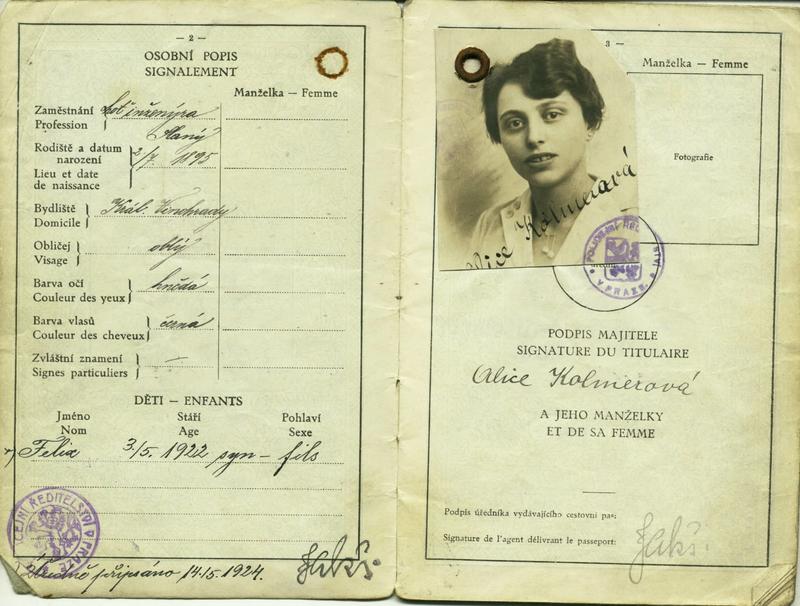 — 2 —
OSOBNÍ POPIS
SIGNALEMENT
Manželka — Femme
Zaměstnání
Profession
choť inženýra
Slaný
Rodiště a datum
narození
Lieu et date
de naissance
2/7. 1895
Bydliště
Domicile
Král. Vinohrady
Obličej
Visage
oblý
Barva očí
Couleur des yeux
hnědá
Barva vlasů
Couleur des cheveux
černá
Zvláštní znamení
Signes particuliers
—
DĚTI — ENFANTS
Jméno Stáří Pohlaví
Nom Age Sexe
Felix 3/5. 1922 syn – fils
ŘEDITELSTVÍ V PRAZE
připsáno 14/5. 1924.
3 —
Manželka — Femme
Fotografie
Alice Kolmerová
V PRAZE
PODPIS MAJITELE
SIGNATURE DU TITULAIRE
Alice Kolmerová
A JEHO MANŽELKY
ET DE SA FEMME
Podpis úředníka vydávajícího cestovní pas:
Signature de l'agent délivrant le passeport: